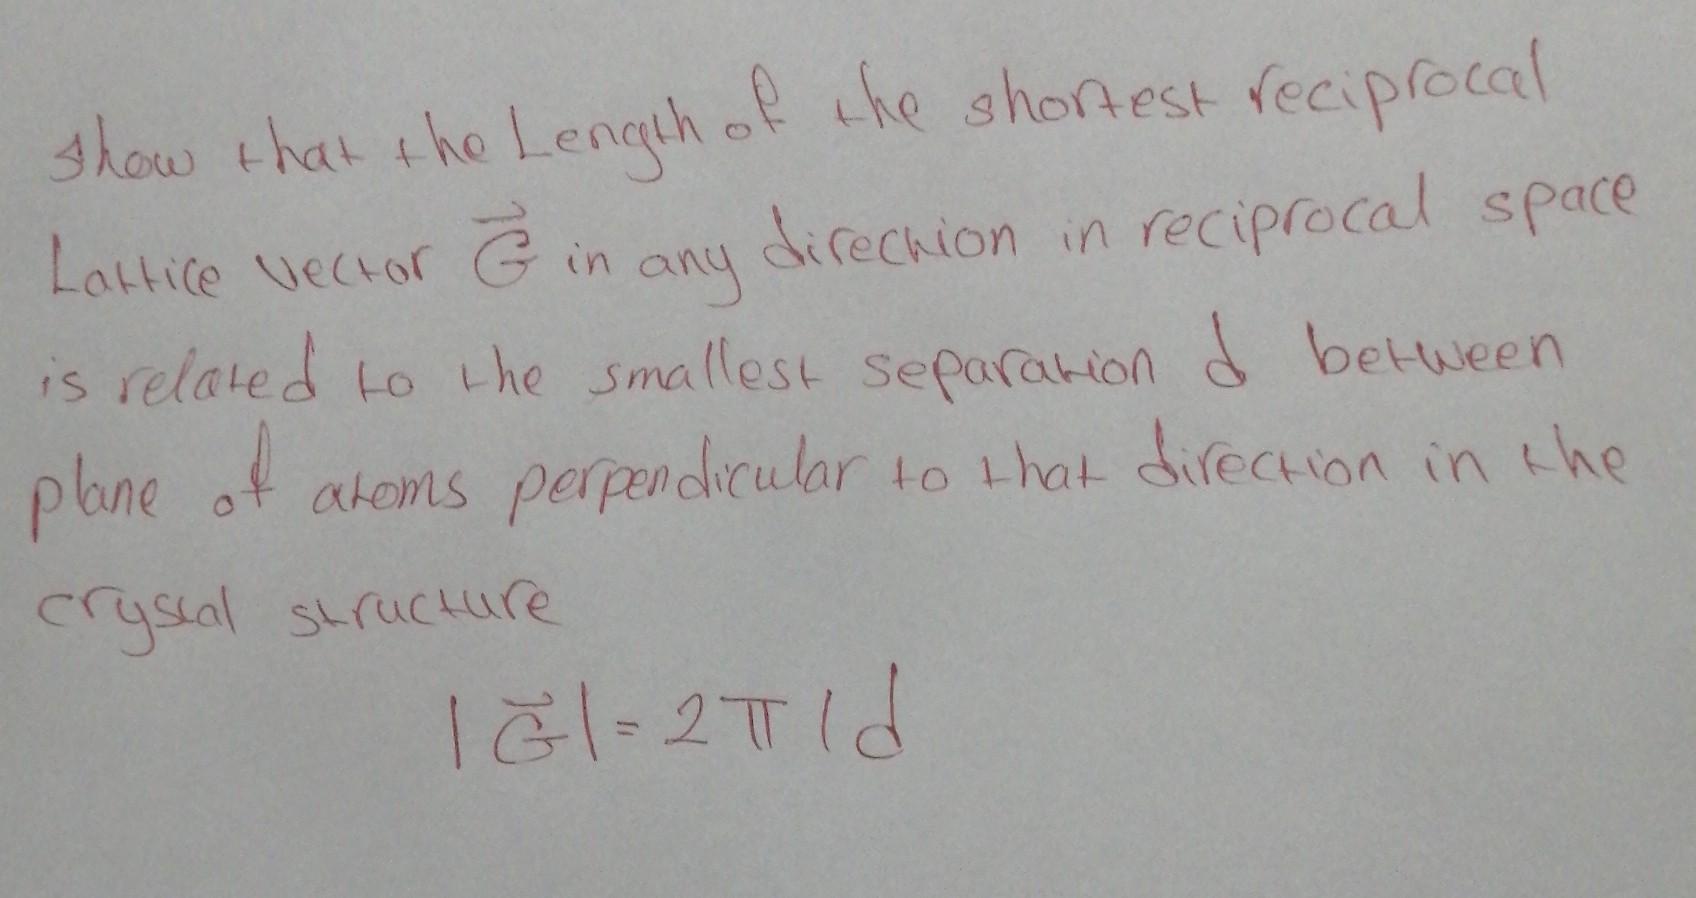 show that the Length of the shortest reciprocal
Lattice vector G⃗ in any direction in reciprocal space
is related to the smallest separation d between
plane of atoms perpendicular to that direction in the
crystal structure
|G⃗| = 2π/d